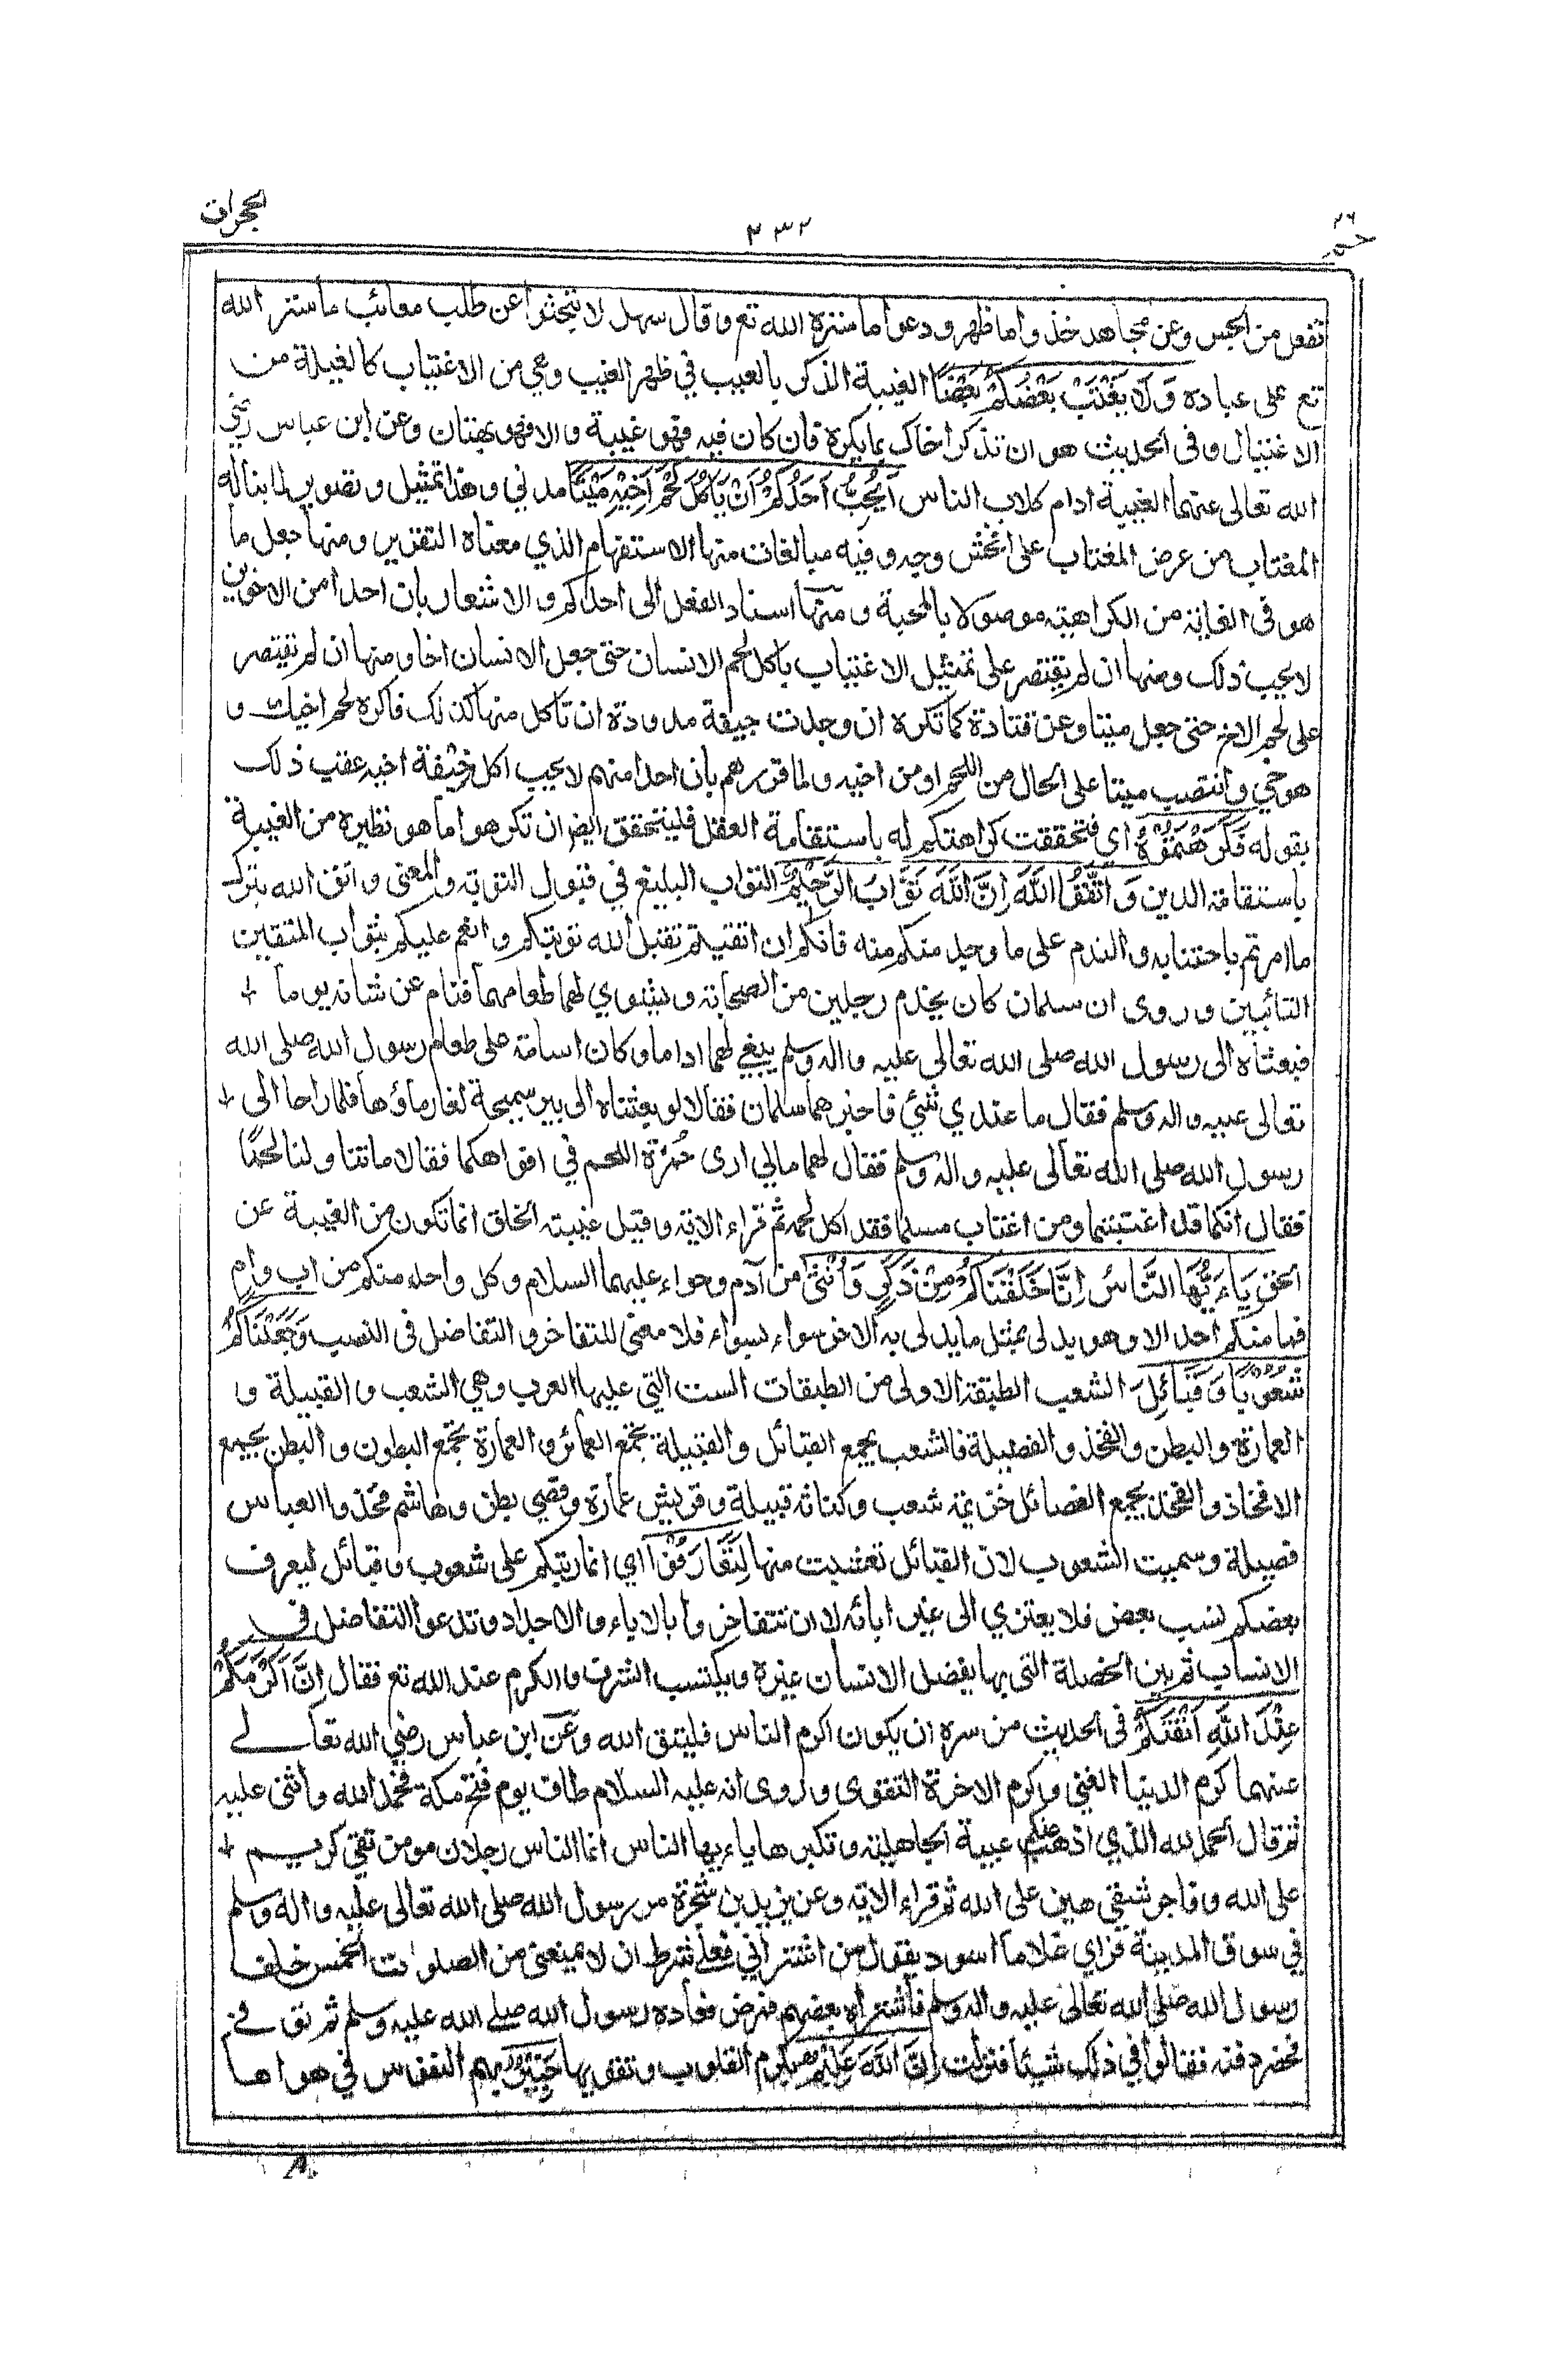 الحجرات
٢٣٢
٢٦
حم
تفعل من الجس وعن مجاهد خذوا ما ظهر ودعوا ما ستره الله تع وقال سهل لا تبحثوا عن طلب معائب ما ستر الله
تع على عباده وَلَا يَغْتَبْ بَعْضُكُمْ بَعْضًا الغيبة الذكر بالعيب في ظهر الغيب وهي من الاغتياب كالغيلة من
الاغتيال وفى الحديث هو ان تذكر اخاك بما يكره فان كان فيه فهو غيبة والا فهو بهتان وعن ابن عباس رضي
الله تعالى عنهما الغيبة ادام كلاب الناس اَيُحِبُّ اَحَدُكُمْ اَنْ يَاْكُلَ لَحْمَ اَخِيْهِ مَيْتًا مدني وهذا تمثيل وتصوير لما يناله
المغتاب من عرض المغتاب على افحش وجه وفيه مبالغات منها الاستفهام الذي معناه التقرير ومنها جعل ما
هو فى الغاية من الكراهية موصولا بالمحبة ومنها اسناد الفعل الى احدكم والاشعار بان احدا من الاخوين
لا يحب ذلك ومنها ان لم يقتصر على تمثيل الاغتياب باكل لحم الانسان حتى جعل الانسان اخا ومنها ان لم يقتصر
على لحم الاخ حتى جعل ميتا وعن قتادة كما تكره ان وجدت جيفة مدودة ان تاكل منها كذلك فاكره لحم اخيك و
هو حي وانتصب ميتا على الحال من اللحم او من اخيه ولما قررهم بان احدا منهم لا يحب اكل جيفة اخيه عقب ذلك
بقوله فَكَرِهْتُمُوْهُ اي فتحققت كراهتكم له باستقامة العقل فليتحقق ايضا ان تكرهوا ما هو نظيره من الغيبة
باستقامة الدين وَ اتَّقُوا اللّٰهَ اِنَّ اللّٰهَ تَوَّابٌ رَّحِيْمٌ التواب البليغ في قبول التوبة والمعنى واتقوا الله بترك
ما امرتم باجتنابه والندم على ما وجد منكم منه فانكم ان اتقيتم تقبل الله توبتكم وانعم عليكم بثواب المتقين
التائبين وروى ان سلمان كان يخدم رجلين من الصحابة ويسوي لهما طعامهما فنام عن شانه يوما
فبعثاه الى رسول الله صلى الله تعالى عليه واله وسلم يبغي لهما اداما وكان اسامة على طعام رسول الله صلى الله
تعالى عليه واله وسلم فقال ما عندي شئي فاخبرهما سلمان فقالا لو بعثناه الى بير سميحة لغار ماؤها فلما راحا الى
رسول الله صلى الله تعالى عليه واله وسلم فقال لهما مالي ارى حُمْرَة اللحم في افواهكما فقالا ما تناولنا لحمًا
فقال انكما قد اغتبتما ومن اغتاب مسلما فقد اكل لحمه ثم قراء الاية وقيل غيبة الخلق انما تكون من الغيبة عن
الحق يَاءَيُّهَا النَّاسُ اِنَّا خَلَقْنَاكُمْ مِنْ ذَكَرٍ وَ اُنْثٰى من آدم وحواء عليهما السلام وكل واحد منكم من اب وام
فما منكم احد الا وهو يدلى بمثل ما يدلى به الاخر سواء بسواء فلا معنى للتفاخر والتفاضل فى النسب وَجَعَلْنَاكُمْ
شُعُوْبًا وَ قَبَائِلَ الشعب الطبقة الاولى من الطبقات الست التي عليها العرب وهي الشعب والقبيلة و
العمارة والبطن والفخذ والفصيلة فالشعب يجمع القبائل والقبيلة تجمع العمائر والعمارة تجمع البطون والبطن يجمع
الافخاذ والفخذ يجمع الفصائل خزيمة شعب وكنانة قبيلة وقريش عمارة وقصي بطن وهاشم فخذ والعباس
فصيلة وسميت الشعوب لان القبائل تعشبت منها لِتَعَارَفُوْا اي انما رتبكم على شعوب وقبائل ليعرف
بعضكم نسب بعض فلا يعتزي الى غير ابائه لا ان تتفاخروا بالاباء والاجداد وتدعوا التفاضل فى
الانساب ثم بين الخصلة التى بها يفضل الانسان غيره ويكتسب الشرف والكرم عند الله تع فقال اِنَّ اَكْرَمَكُمْ
عِنْدَ اللّٰهِ اَتْقٰىكُمْ فى الحديث من سره ان يكون اكرم الناس فليتق الله وعن ابن عباس رضي الله تعالى
عنهما كرم الدنيا الغنى وكرم الاخرة التقوى وروى انه عليه السلام طاف يوم فتح مكة فحمد الله واثنى عليه
ثم قال الحمد لله الذي اذهب عنكم عبية الجاهلية وتكبرها ياءيها الناس انما الناس رجلان مومن تقي كريم
على الله وفاجر شقي هين على الله ثم قراء الاية وعن يزيد بن شجرة مر رسول الله صلى الله تعالى عليه واله وسلم
في سوق المدينة فراي غلاما اسود يقول من اشتراني فعلى شرط ان لا يمنعنى من الصلوات الخمس خلف
رسول الله صلى الله تعالى عليه واله وسلم فاشتراه بعضهم فمرض فعاده رسول الله صلى الله عليه وسلم ثم توفي
فحضر دفنه فقالوا في ذلك شيئا فنزلت اِنَّ اللّٰهَ عَلِيْمٌ كرم القلوب وتقويها خَبِيْرٌ بهم النفوس في هواها